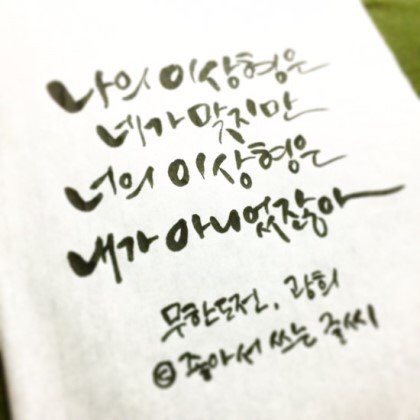 나의 이상형은
네가 맞지만
너의 이상형은
내가 아니었잖아
무한도전. 광희
ⓒ 좋아서 쓰는 글씨